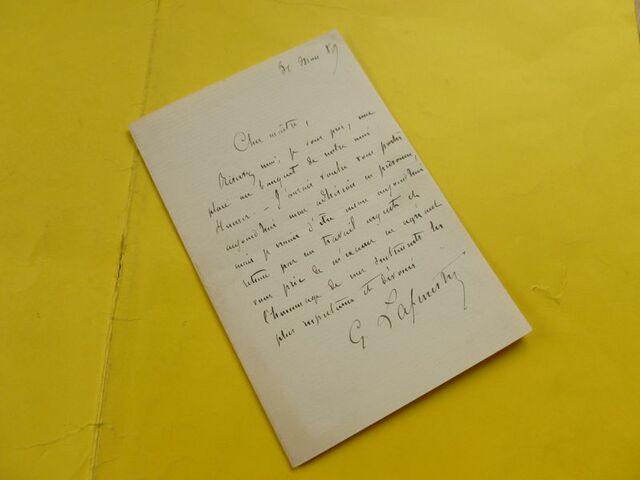 30 Mai 89
Cher maître,
Réservez moi, je vous prie, une
place au banquet de notre ami
J'aurais voulu vous porter
aujourd'hui mon adhésion en personne,
mais je viens d'être même aujourd'hui
retenu par un travail urgent et
vous prie de m'excuser en agréant
l'hommage de mes sentiments les
plus respectueux et dévoués
G Lafenestre